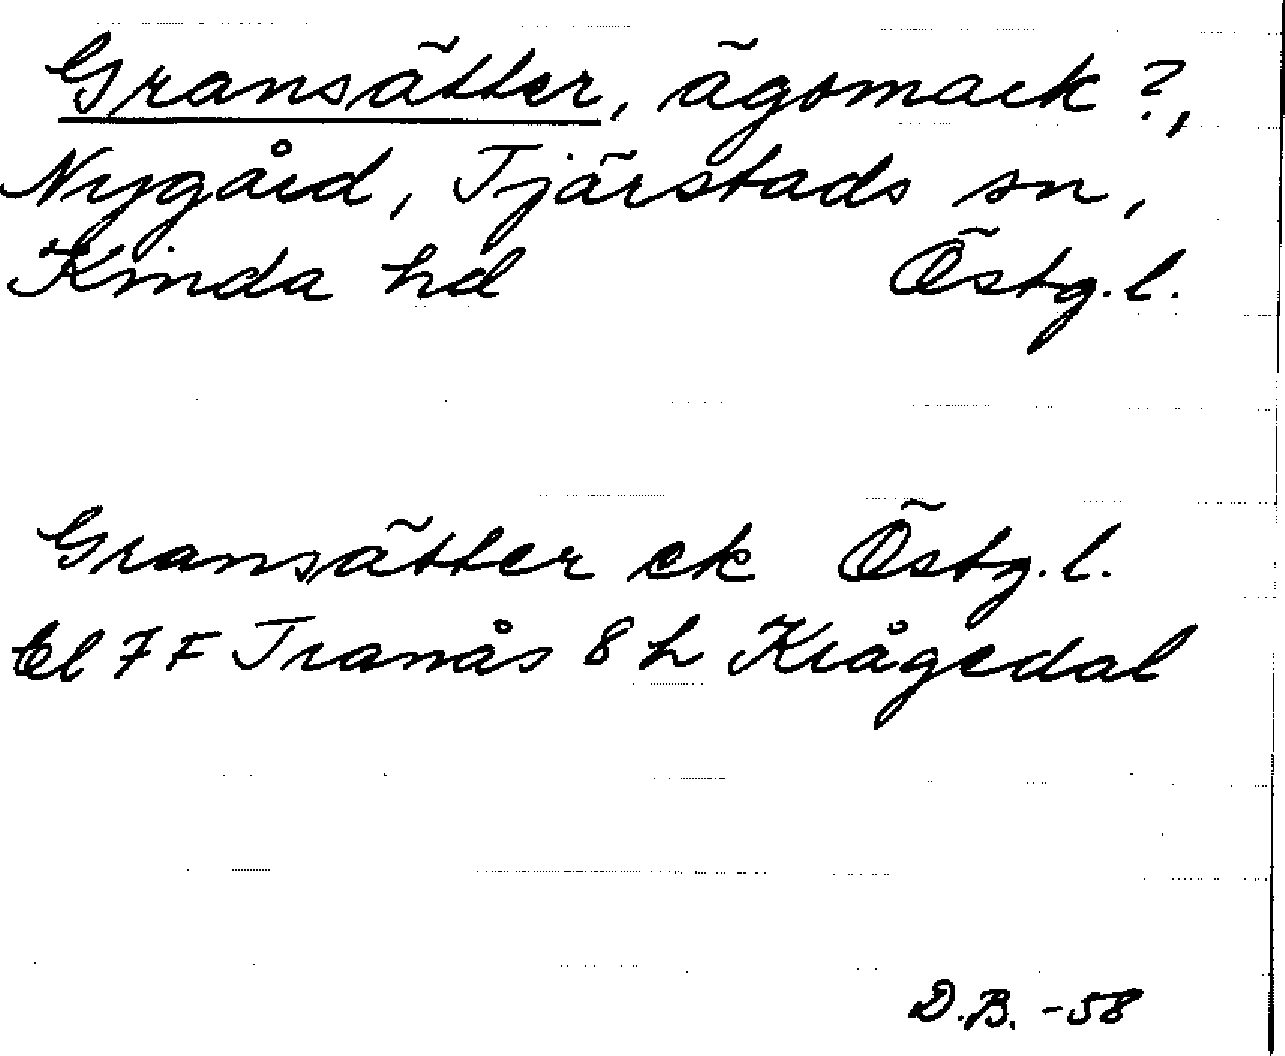 Gransätter, ägomark ?,
Nygård, Tjärstads sn,
Kinda hd Östg.l.
Gransätter ek Östg.l.
bl 7 F Tranås 8 h Krågedal
D.B. -58